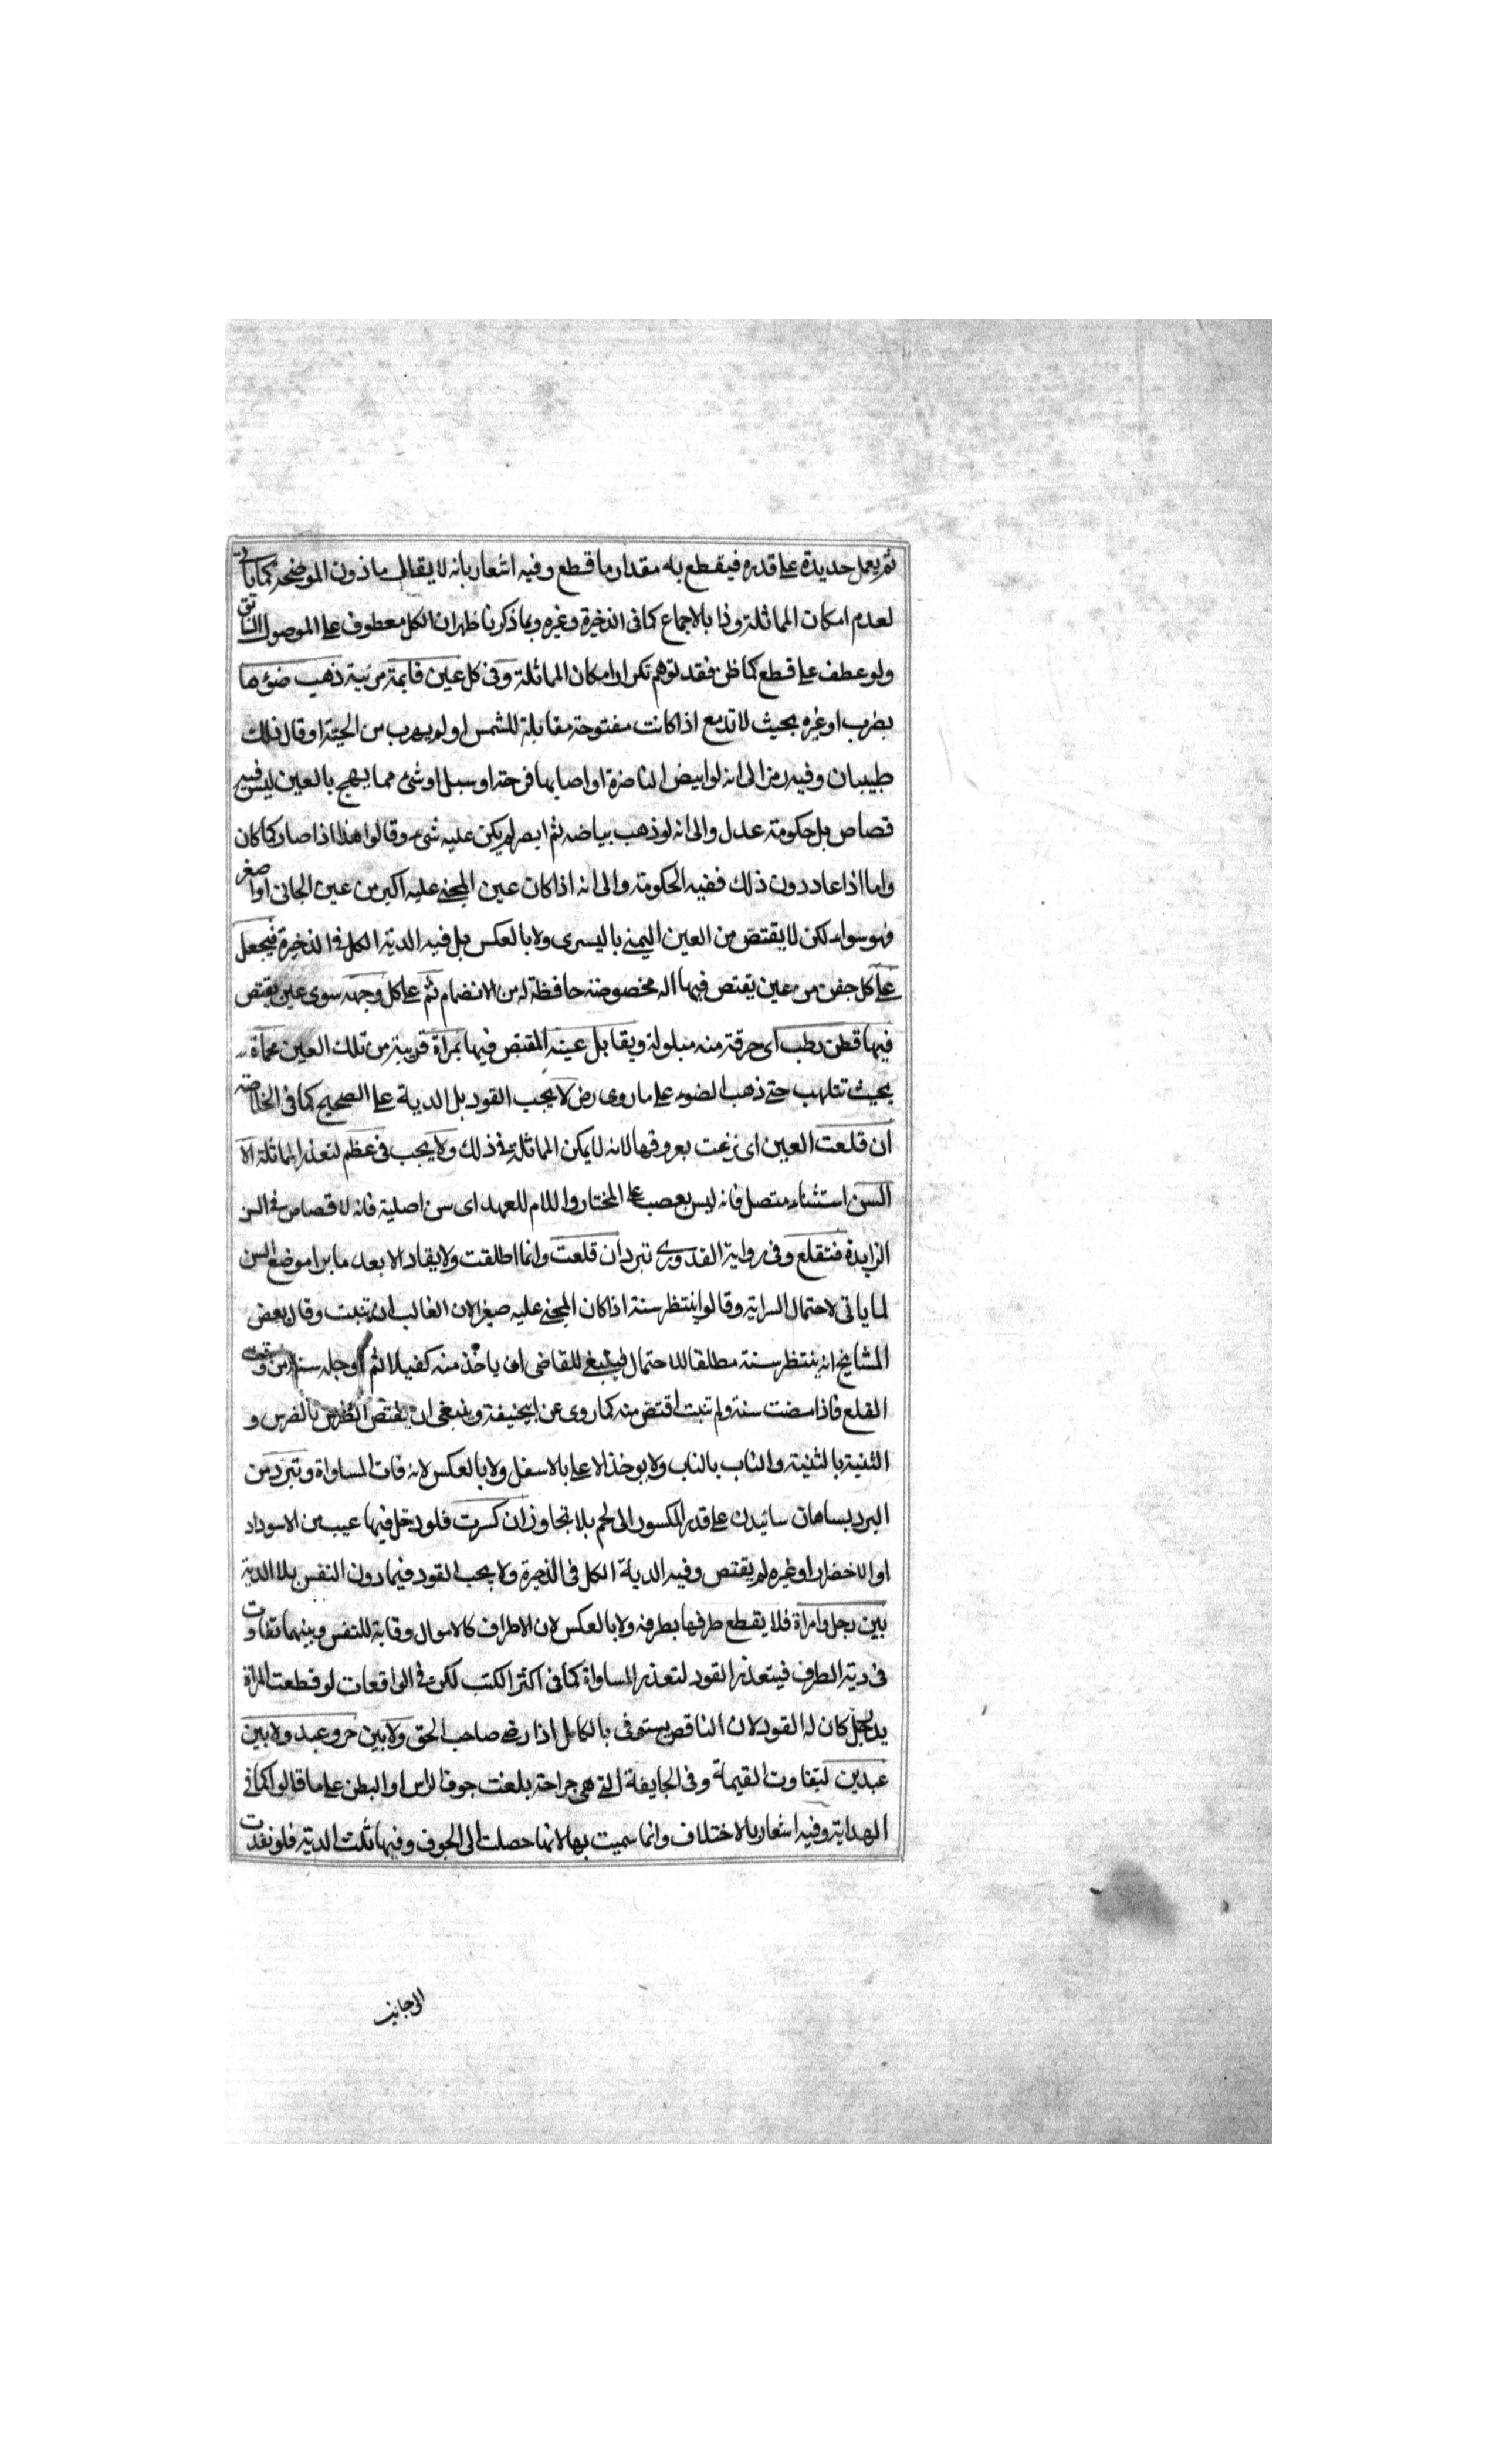 ثم يعمل حديدة على قدره فيقطع به مقدار ما قطع وفيه اشعار بانه لا يقال ما دون الموضحة كما ياتى
لعدم امكان المماثلة وذا بالاجماع كما فى الذخيرة وغيره وبما ذكرنا ظهر ان الكل معطوف على الموصول
ولو عطف على قطع كما ظن فقد توهم تكرار امكان المماثلة وفى كل عين قايمة مرئية ذهب ضؤها
بضرب او غيره بحيث لا تدمع اذا كانت مفتوحة مقابلة للشمس او لم يهرب من الحية او قال ذلك
طبيبان وفيه رمز الى انه لو ابيض الناضرة او اصابها قرحة او سبل او شئ مما يهج بالعين ليس فيه
قصاص بل حكومة عدل والى انه لو ذهب بياضه ثم ابصر لم يكن عليه شئ وقالوا هذا اذا صار كما كان
واما اذا عاد دون ذلك ففيه الحكومة والى انه اذا كان عين المجنى عليه اكبر من عين الجانى او اصغر
فهو سواء لكن لا يقتص من العين اليمنى باليسرى ولا بالعكس بل فيه الدية الكل فى الذخيرة فيجعل
على كل جفن من عين يقتص فيها اله مخصوصة حافظة له من الانضمام ثم على كل وجهه سوى عين يقتص
فيها قطن رطب اى حرقة منه مبلولة ويقابل عينه المقتص فيها بمراة قريبة من تلك العين محماة
بحيث تتلهب حتى ذهب الضوء على ما روى رض لا يجب القود بل الدية على الصحيح كما فى الخلاصة
ان قلعت العين اى نزعت بعروقها لانه لا يمكن المماثلة فى ذلك ولا يجب فى عظم لتعذر المماثلة الا
السن استثناء متصل فانه ليس بعصب على المختار واللام للعهد اى سن اصلية فانه لا قصاص فى السن
الزايدة فتقلع وفى رواية القدورى تبرد ان قلعت وانما اطلقت ولا يقاد الا بعد ما برا موضع السن
لما ياتى لاحتمال السراية وقالوا ينتظر سنة اذا كان المجنى عليه صغيرا لان الغالب ان تنبت وقال بعض
المشايخ انه ينتظر سنة مطلقا للاحتمال فينبغى للقاضى ان ياخذ منه كفيلا ثم اوجله سنة من وقت
القلع فاذا مضت سنة ولم تنبت اقتص منه كما روى عن ابيحنيفة وينبغى ان يقتص الضرس بالضرس و
الثنية بالثنية والناب بالناب ولا يوخذ الاعلى بالاسفل ولا بالعكس لانه فات المساواة وتبرد من
البرد بساهان سائيدن على قدر المكسور الى لحم بلا تجاوز ان كسرت فلو دخل فيها عيب من الاسوداد
او الاخضرار او غيره لم يقتص وفيه الدية الكل فى الذخيرة ولا يجب القود فيما دون النفس بلا الدية
بين رجل وامراة فلا يقطع طرفها بطرفه ولا بالعكس لان الاطراف كالاموال وقاية للنفس وبينهما تفاوت
فى دية الطرف فيتعذر القود لتعذر المساواة كما فى اكثر الكتب لكن فى الواقعات لو قطعت المراة
يد رجل كان له القود لان الناقص يستوفى بالكامل اذا رضى صاحب الحق ولا بين حر وعبد ولا بين
عبدين لتفاوت القيمة وفى الجايفة التى هى جراحة بلغت جوف الراس او البطن على ما قالوا كما فى
الهداية وفيه اشعار بالاختلاف وانما سميت بها لانها حصلت الى الجوف وفيها ثلث الدية فلو نفذت
الى جانب